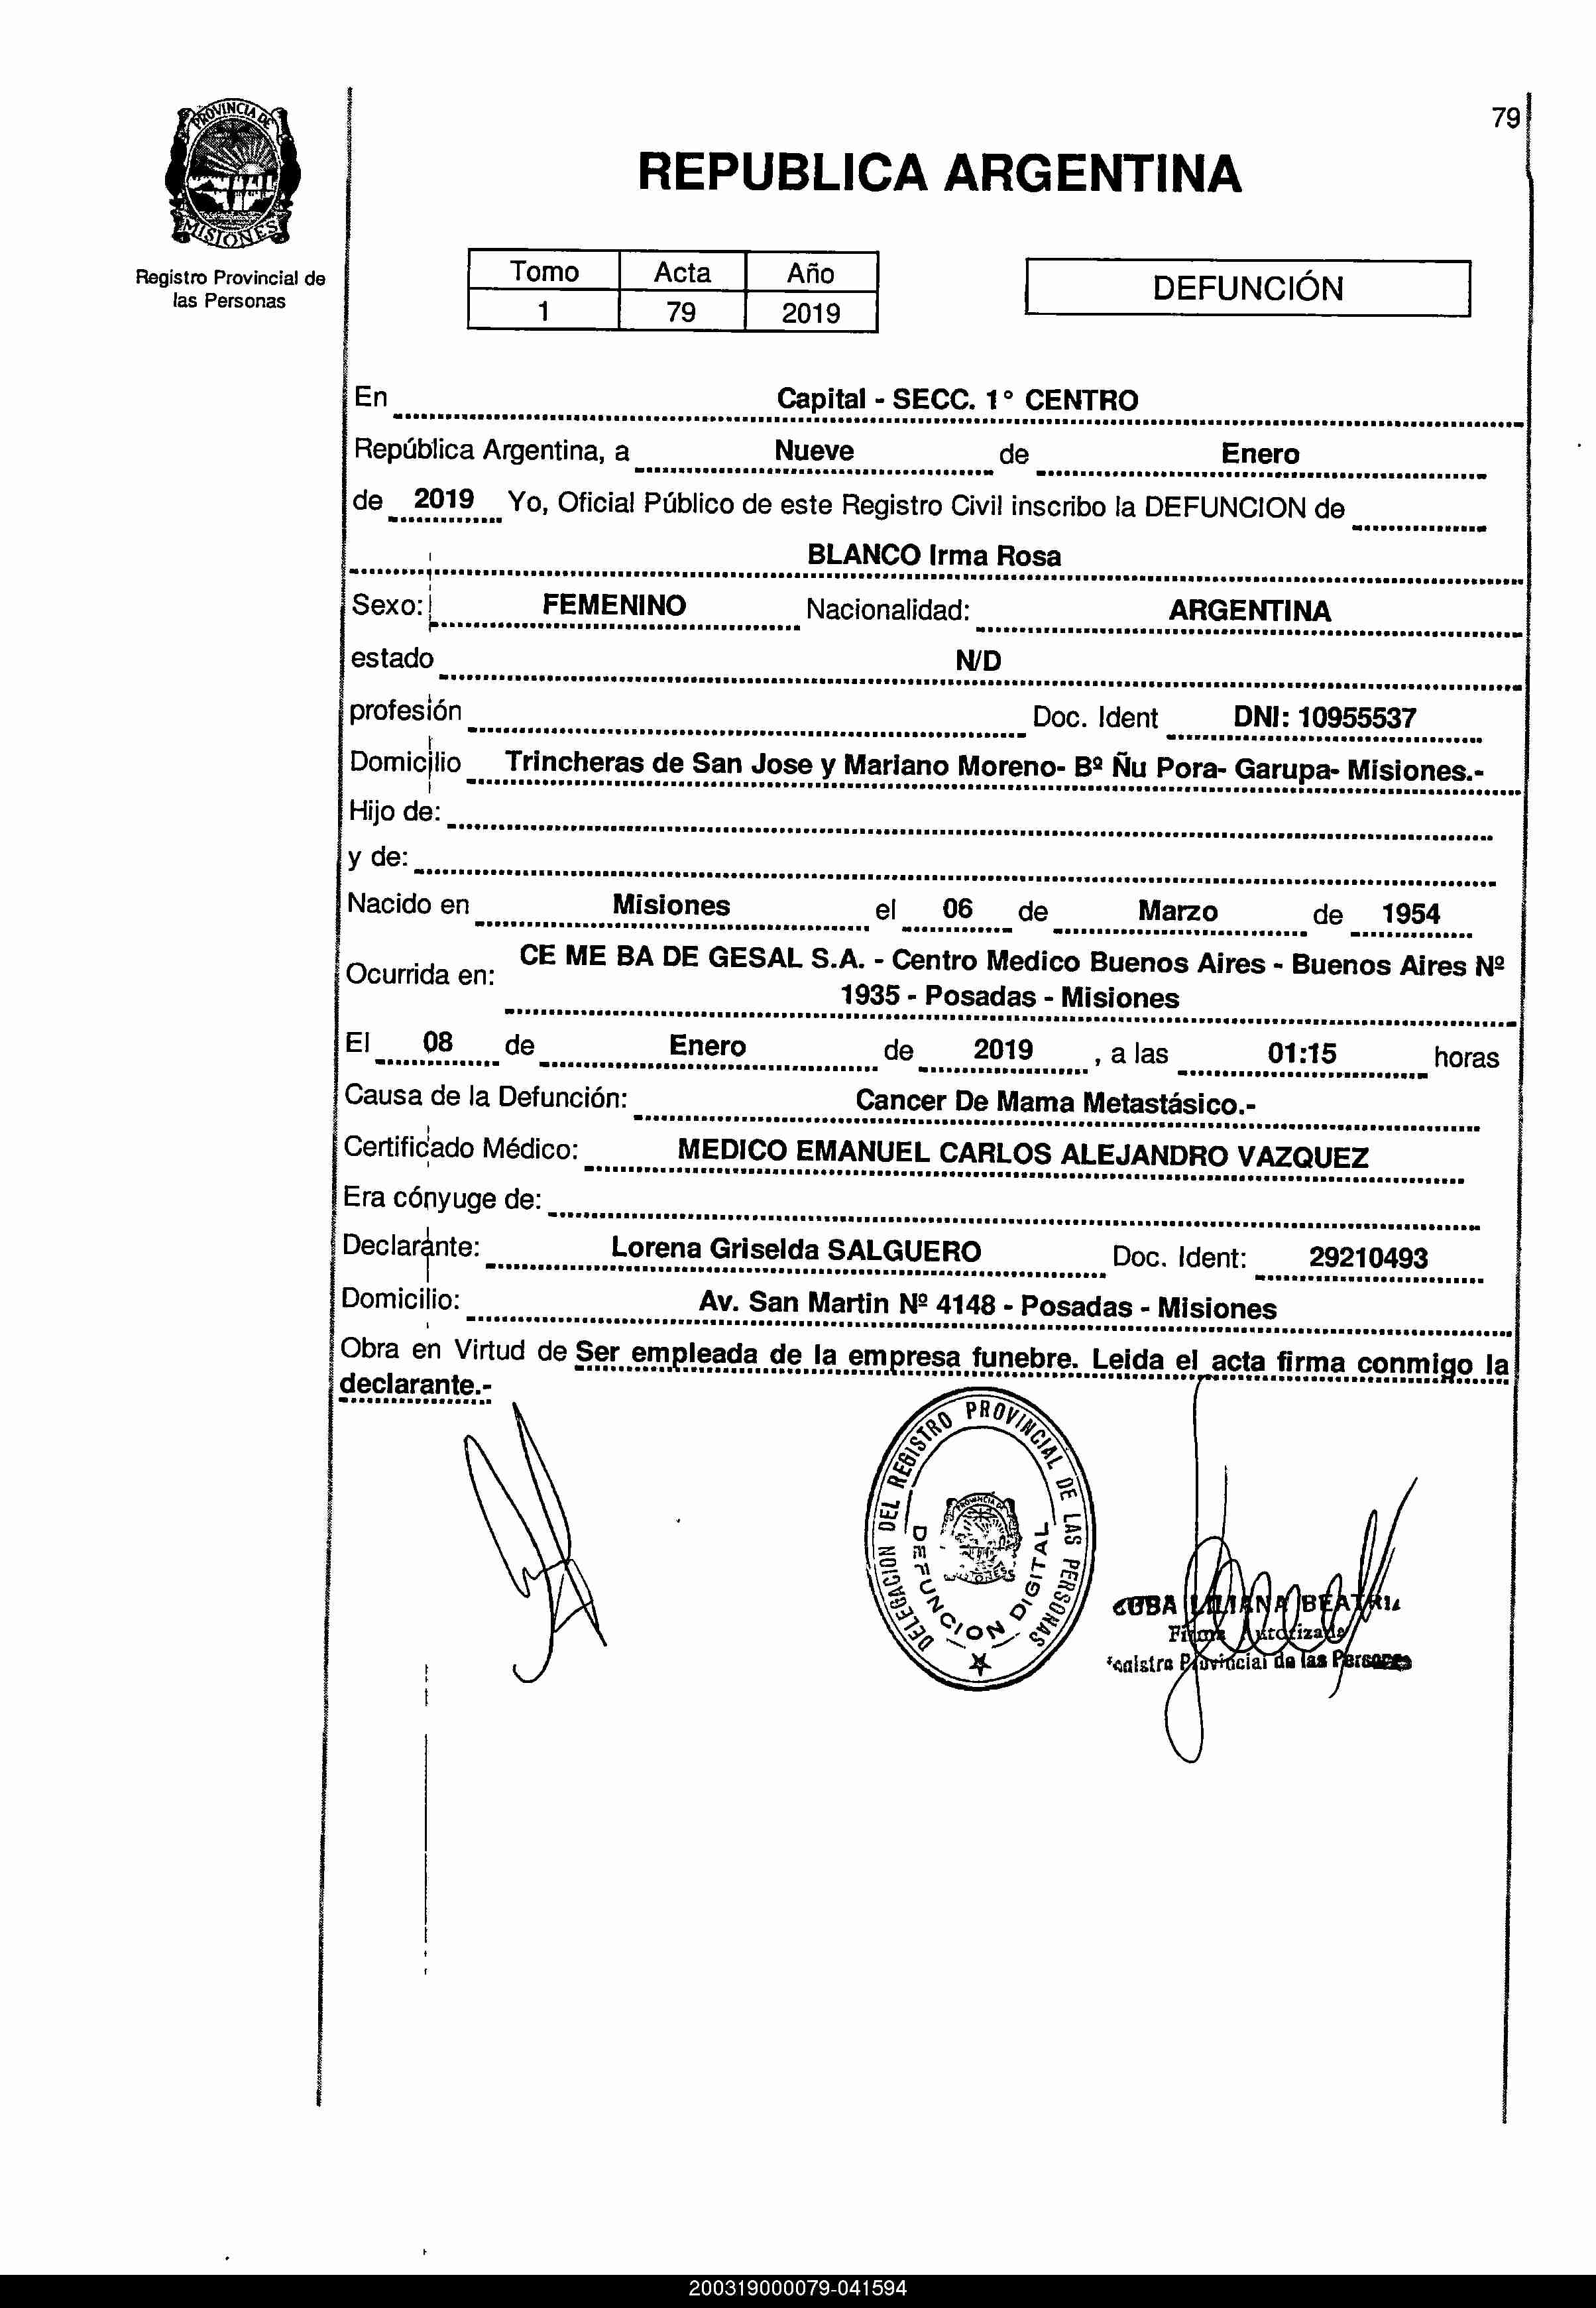 79
PROVINCIA DE
MISIONES
Registro Provincial de
las Personas
REPUBLICA ARGENTINA
Tomo Acta Año
1 79 2019
DEFUNCIÓN
En Capital - SECC. 1° CENTRO
República Argentina, a Nueve de Enero
de 2019 Yo, Oficial Público de este Registro Civil inscribo la DEFUNCION de
BLANCO Irma Rosa
Sexo: FEMENINO Nacionalidad: ARGENTINA
estado N/D
profesión Doc. Ident DNI: 10955537
Domicilio Trincheras de San Jose y Mariano Moreno- Bº Ñu Pora- Garupa- Misiones.-
Hijo de:
y de:
Nacido en Misiones el 06 de Marzo de 1954
Ocurrida en: CE ME BA DE GESAL S.A. - Centro Medico Buenos Aires - Buenos Aires Nº
1935 - Posadas - Misiones
El 08 de Enero de 2019 , a las 01:15 horas
Causa de la Defunción: Cancer De Mama Metastásico.-
Certificado Médico: MEDICO EMANUEL CARLOS ALEJANDRO VAZQUEZ
Era cónyuge de:
Declarante: Lorena Griselda SALGUERO Doc. Ident: 29210493
Domicilio: Av. San Martin Nº 4148 - Posadas - Misiones
Obra en Virtud de Ser empleada de la empresa funebre. Leida el acta firma conmigo la
declarante.-
DELEGACION DEL REGISTRO PROVINCIAL DE LAS PERSONAS
PROVINCIA DE
MISIONES
DEFUNCION DIGITAL
LILIANA
Firma Autorizada
Provincial de las Personas
200319000079-041594